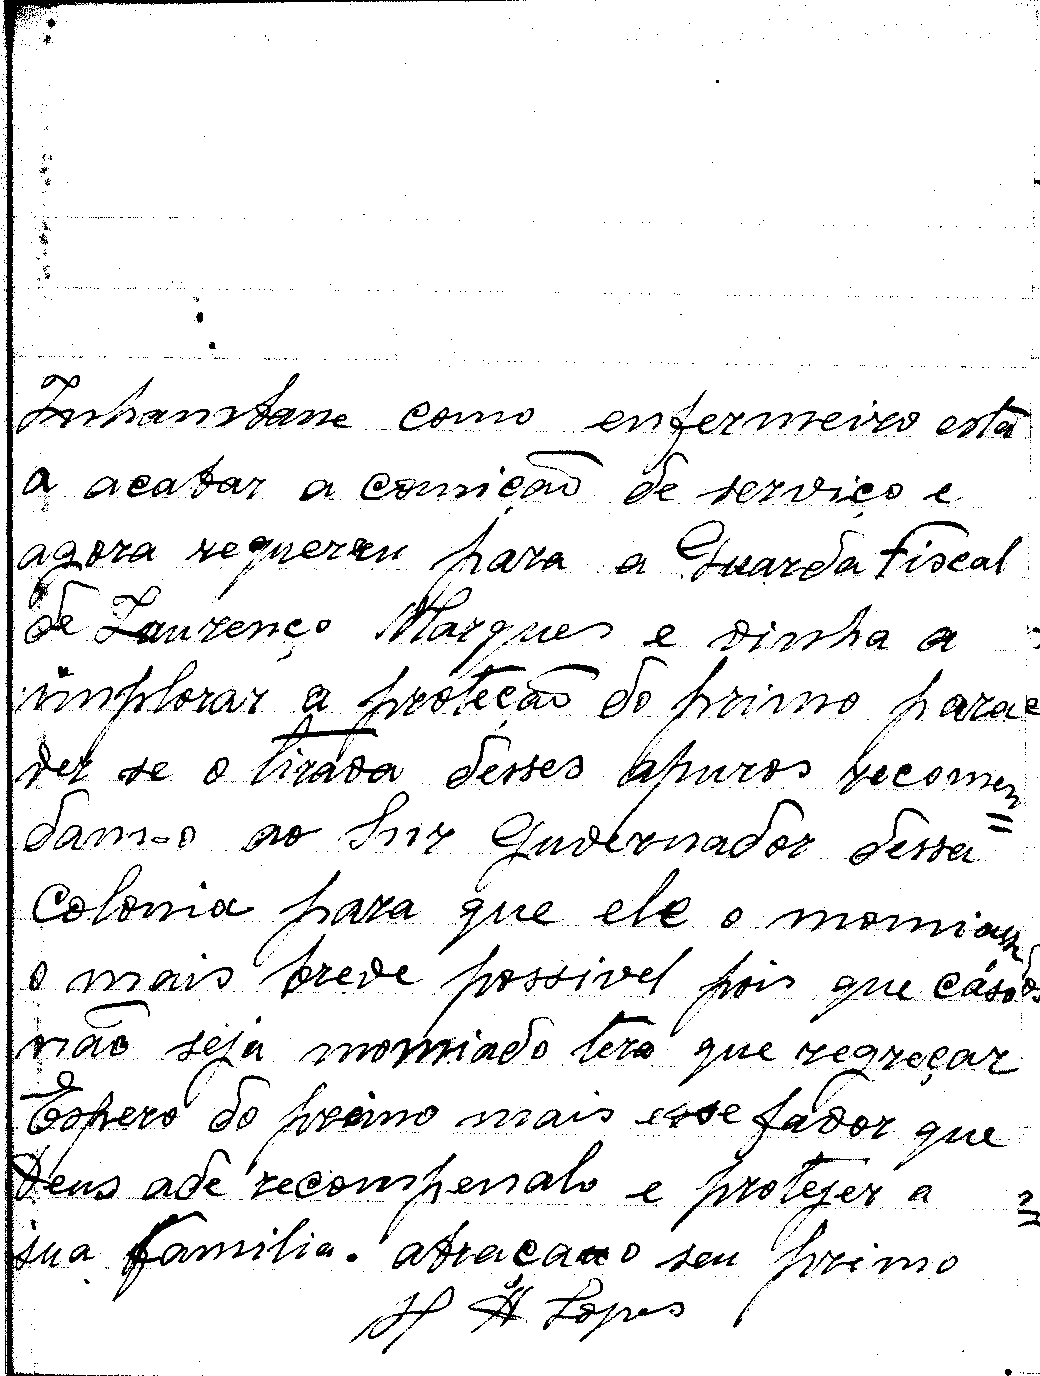 Inhambane como enfermeiro está
a acabar a comição de serviço e
agora requereu para a Guarda Fiscal
de Lourenço Marques e vinha a
implorar a proteção do primo para
ver se o tirava desses apuros recomen
dam-o ao Snr Guvernador dessa
Colonia para que ele o nomiasse
o mais breve possivel pois que cáso
não seja nomiado tera que regreçar
Espero do primo mais esse favor que
Deus ade recompenalo e protejer a
sua familia. abraca-o seu primo
Lopes